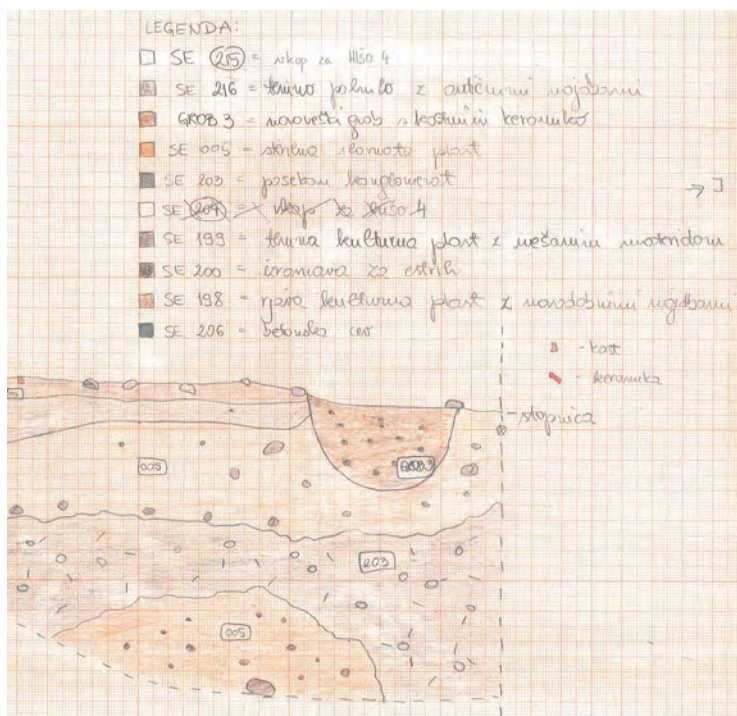 LEGENDA:
SE 215 = vkop za hišo 4
SE 216 = temno polnilo z antičnimi najdbami
GROB 3 = novoveški grob s kostmi in keramiko
SE 005 = sterilna plast
SE 203 = poseben konglomerat
SE 204 = vkop za hišo 4
SE 199 = temna kulturna plast z mešanim materialom
SE 200 = izravnava za estrih
SE 198 = rjava kulturna plast z novodobnimi najdbami
SE 206 = betonska cev
- kost
- keramika
- stopnica
005
GROB 3
203
005